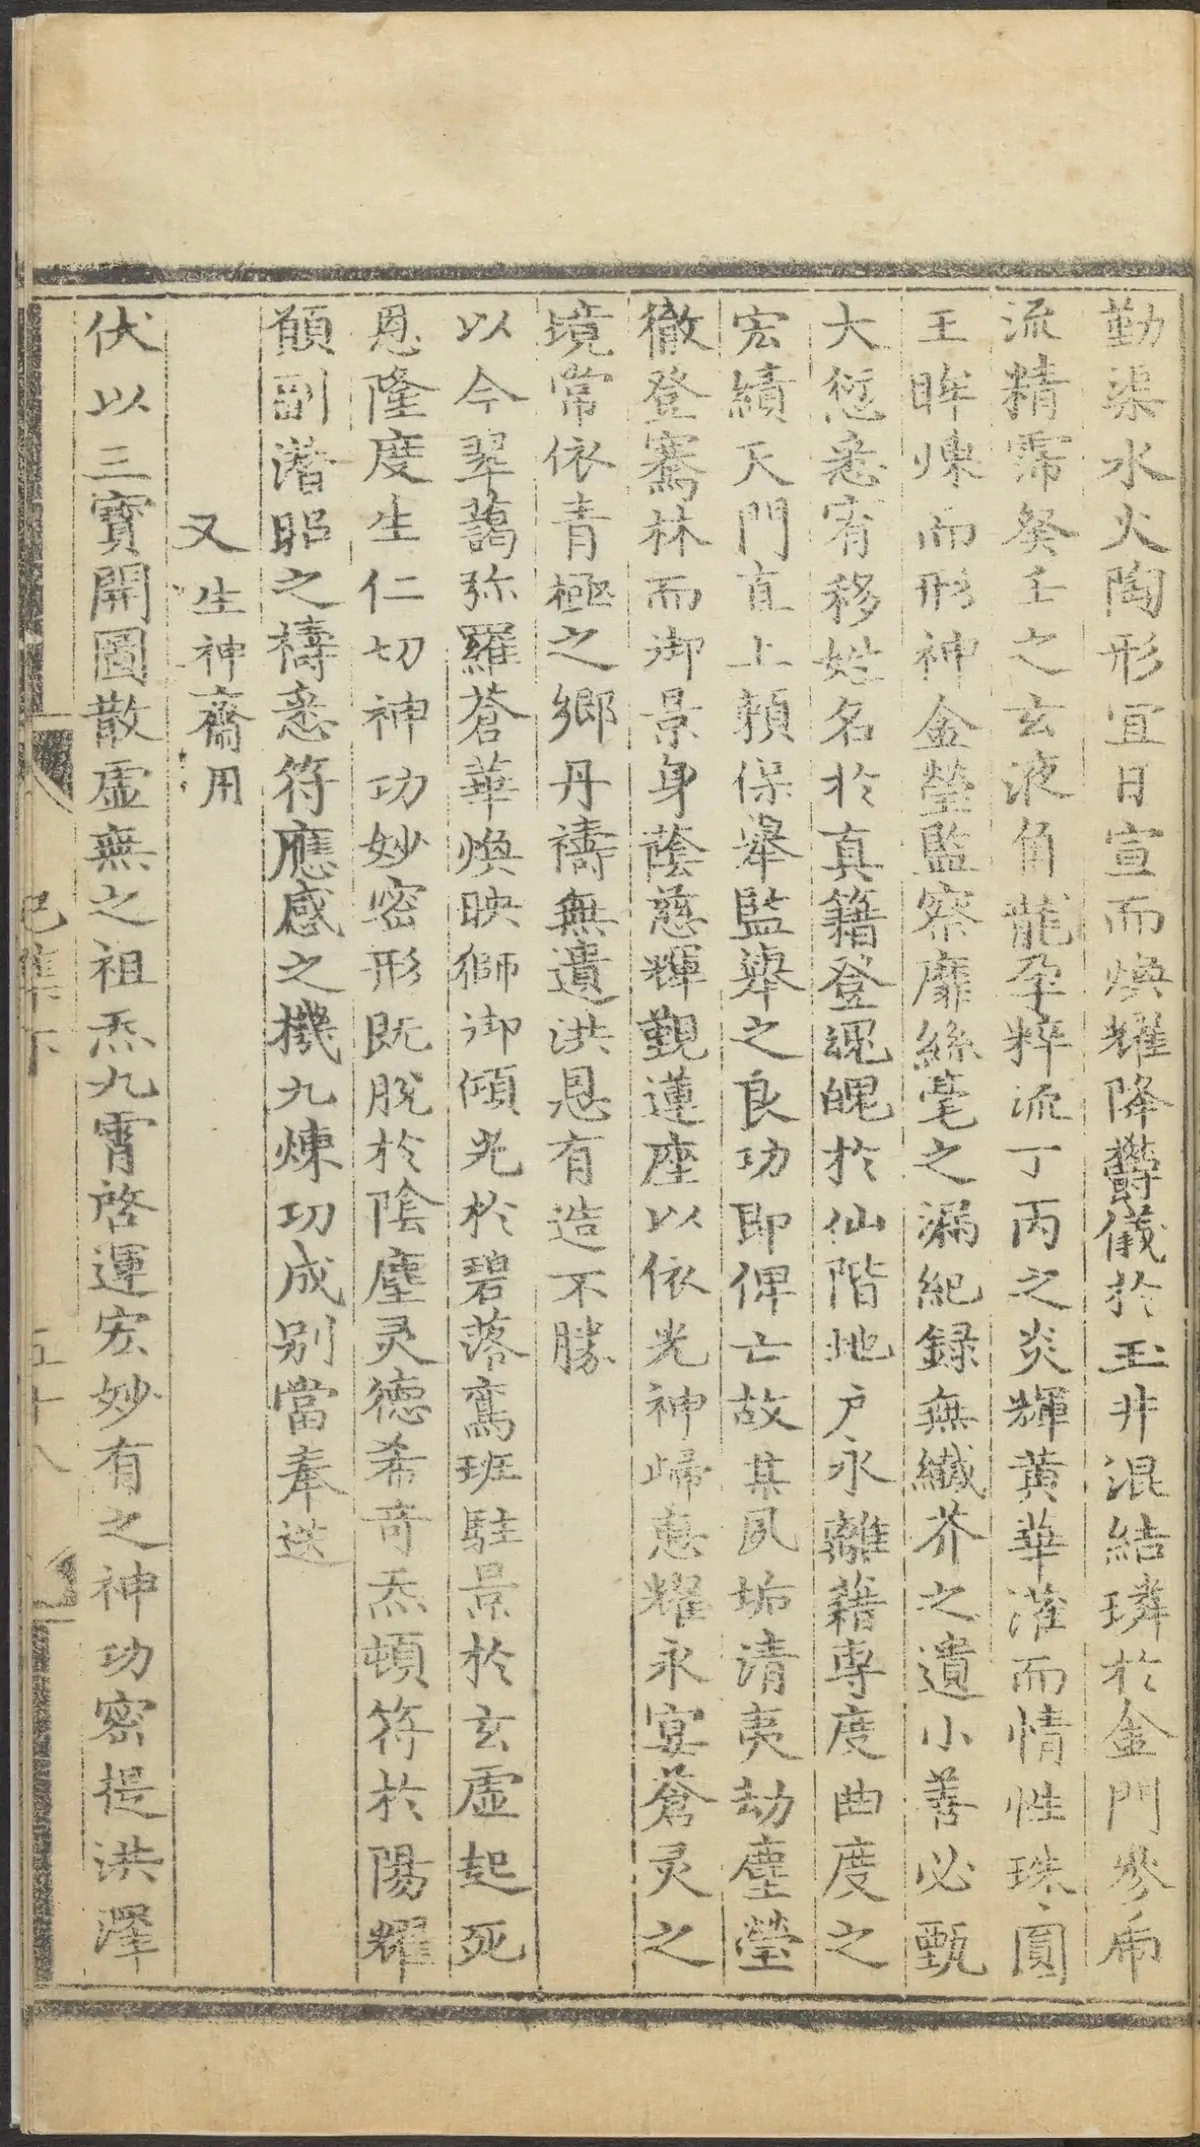 勤渠水火陶形宜日宣而煥耀降欝儀於玉井混結璘於金門參帝
流精霈癸壬之玄液角龍孕粹流丁丙之炎輝黃華灌而情性珠圓
王眸煉而形神金瑩監察靡絲毫之漏紀録無纖芥之遺小善必甄
大愆悉宥移姓名於真籍登魂魄於仙階地户永離籍専度曲度之
宏績天門直上頼保舉監舉之良功即俾亡故某夙垢清夷劫塵瑩
徹登騫林而御景身蔭慈輝覲蓮座以依光神歸惠耀永宴蒼灵之
境常依青極之鄉丹禱無遺洪恩有造不勝
以今翠藹弥羅蒼華煥映獅御傾光於碧落鸞班駐景於玄虛起死
恩隆度生仁切神功妙密形既脫於陰塵灵德希奇炁頓符於陽耀
願副潛昭之禱悉符應感之機九煉功成别當奉送
又生神齋用
伏以三寶開圖散虛無之祖炁九霄啓運宏妙有之神功密提洪澤
巳集下
五十八